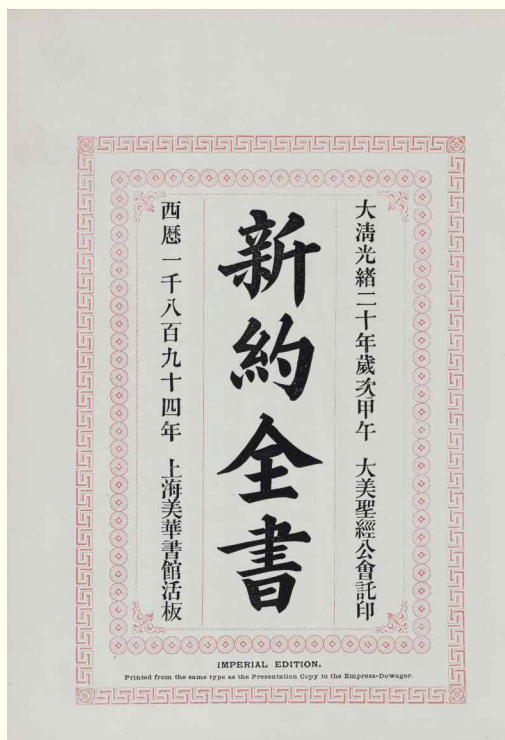 大淸光緒二十年歲次甲午 大美聖經公會託印
新約全書
西曆一千八百九十四年 上海美華書館活板
IMPERIAL EDITION.
Printed from the same type as the Presentation Copy to the Empress-Dowager.